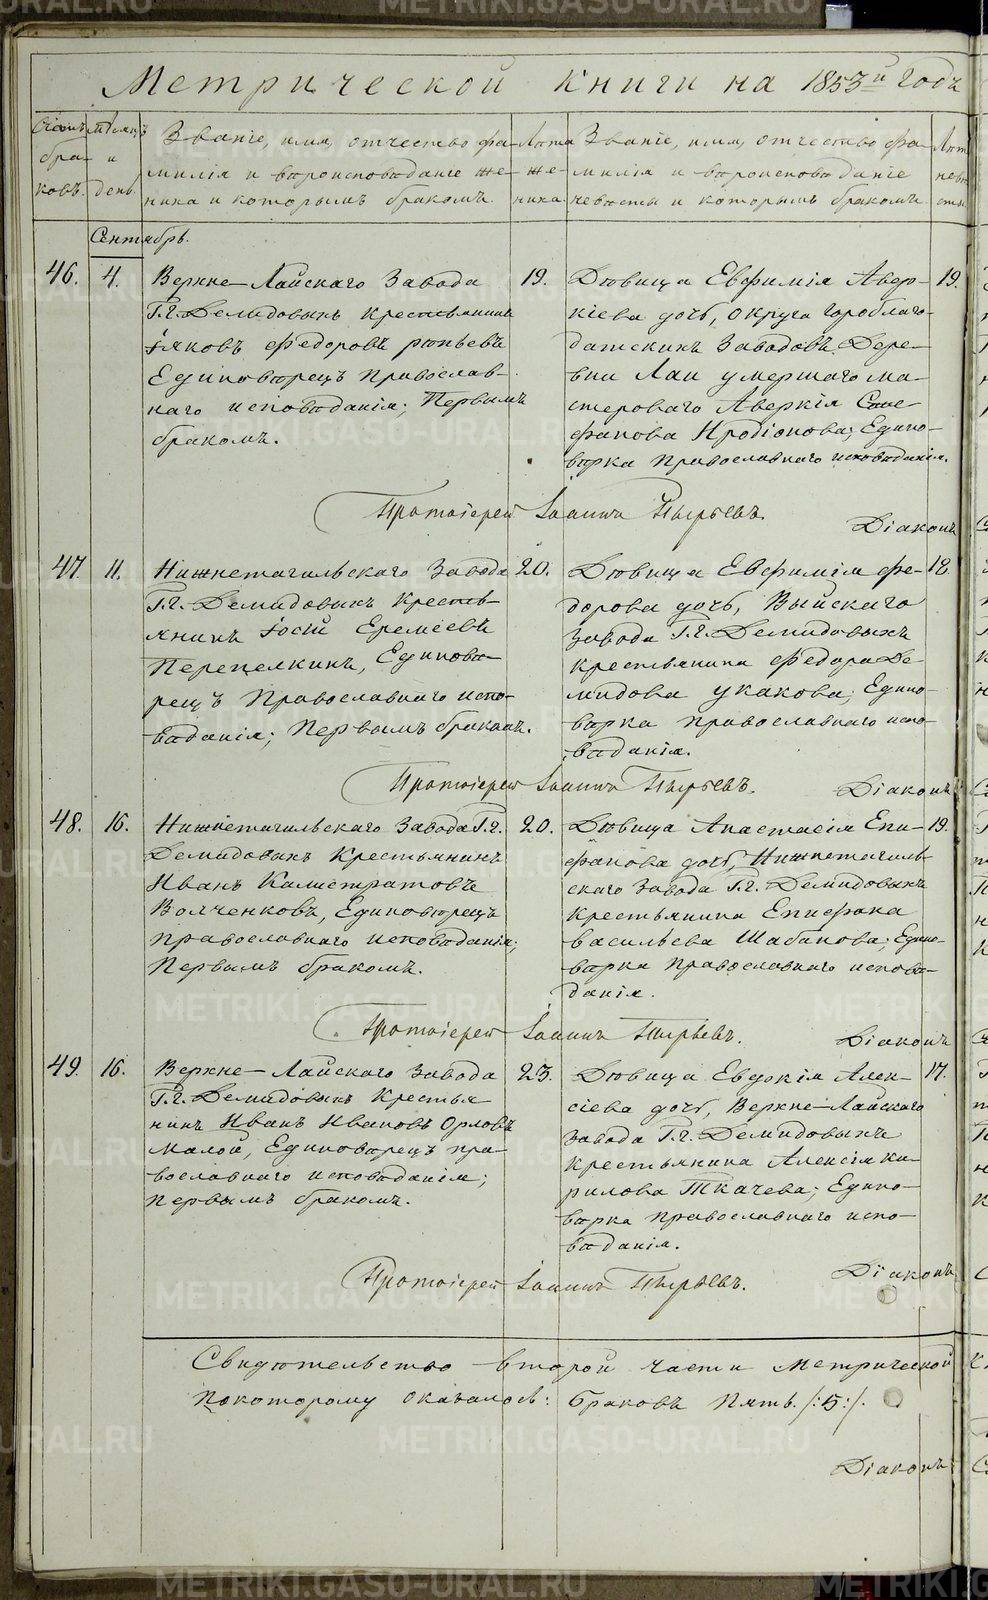 Метрической книги на 1853й годъ
Счетъ браковъ.
Мѣсяцъ и день.
Званіе, имя, отчество, фамилія и вѣроисповѣданіе жениха и которымъ бракомъ.
Лѣта жениха.
Званіе, имя, отчество, фамилія и вѣроисповѣданіе невѣсты и которымъ бракомъ.
Сентябрь.
46. 4.
Верхне-Лайскаго Завода
Г.г. Демидовыхъ крестьянинъ
Іяковъ Федоровъ
Единовѣрецъ Православ-
наго исповѣданія; Первымъ
бракомъ.
19.
Дѣвица Евфимія Авер-
кіева дочь, округа Гороблаго-
датскихъ Заводовъ Дере-
вни Лаи умершаго ма-
стероваго Аверкія Сте-
фанова Иродіонова; Едино-
вѣрка Православнаго исповѣданія.
19.
Протоіерей Іоаннъ Пырьевъ.
Діаконъ
47. 11.
Нижнетагильскаго Завода
Г.г. Демидовыхъ Кресть-
янинъ Іосій Еремеевъ
Перепелкинъ, Единовѣ-
рецъ Православнаго испо-
вѣданія; Первымъ бракомъ.
20.
Дѣвица Евфимія Фе-
дорова дочь, Выйскаго
завода Г.г. Демидовыхъ
крестьянина Федора Де-
мидова Укакова; Едино-
вѣрка православнаго испо-
вѣданія.
18.
Протоіерей Іоаннъ Пырьевъ.
Діаконъ
48. 16.
Нижнетагильскаго Завода Г.г.
Демидовыхъ Крестьянинъ
Иванъ Калистратовъ
Волченковъ, Единовѣрецъ
православнаго исповѣданія;
Первымъ бракомъ.
20.
Дѣвица Анастасія Епи-
фанова дочь, Нижнетагиль-
скаго Завода Г.г. Демидовыхъ
крестьянина Епифана
Васильева Шабанова; Едино-
вѣрка Православнаго исповѣ-
данія.
19.
Протоіерей Іоаннъ Пырьевъ.
Діаконъ
49. 16.
Верхне-Лайскаго Завода
Г.г. Демидовыхъ Крестья-
нинъ Иванъ Ивановъ Орловъ
Малой, Единовѣрецъ пра-
вославнаго исповѣданія;
Первымъ бракомъ.
23.
Дѣвица Евдокія Алек-
сіева дочь, Верхне-Лайскаго
завода Г.г. Демидовыхъ
крестьянина Алексія Ки-
рилова Ткачева; Едино-
вѣрка православнаго испо-
вѣданія.
17.
Протоіерей Іоаннъ Пырьевъ.
Діаконъ
Свидѣтельство второй части Метрической
покоторому оказалось: браковъ Пять /:5:/.
Діаконъ
METRIKI.GASO-URAL.RU